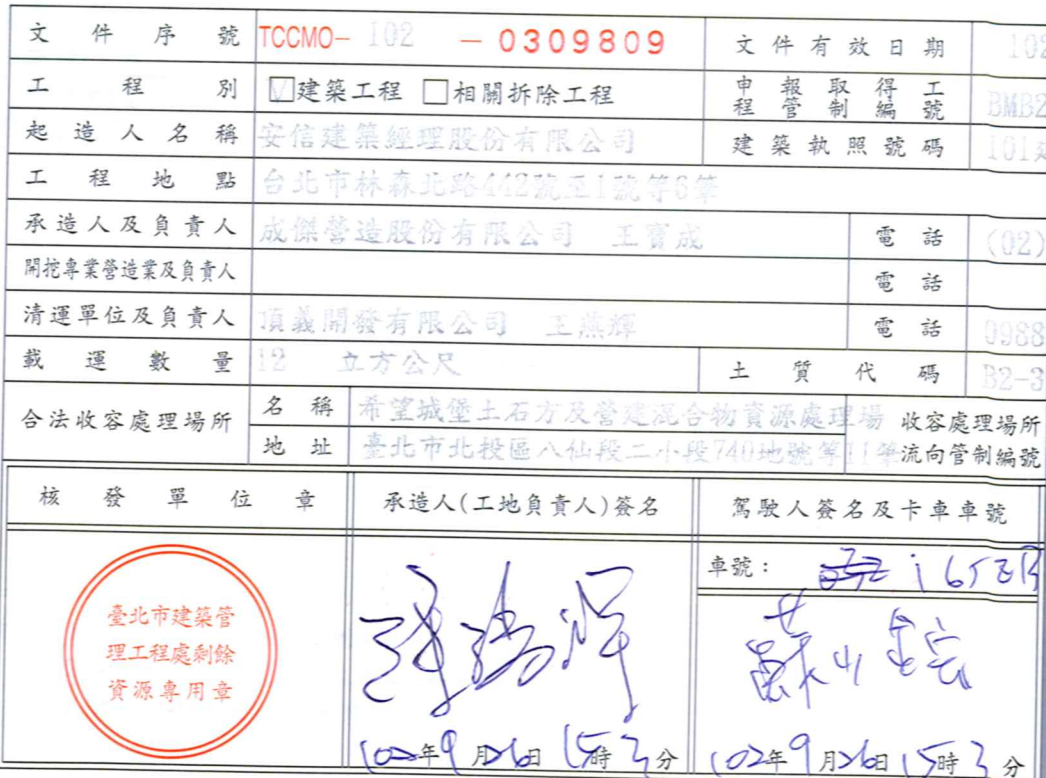 文件序號 TCCMO- 102 - 0309809 文件有效日期 102
工程別 ☑建築工程 □相關拆除工程 申報取得工程管制編號 BMB2
起造人名稱 安信建築經理股份有限公司 建築執照號碼 101建
工程地點 台北市林森北路442號至1號等6筆
承造人及負責人 成傑營造股份有限公司 王寶成 電話 (02)
開挖專業營造業及負責人 電話
清運單位及負責人 頂義開發有限公司 王燕輝 電話 0988
載運數量 12 立方公尺 土質代碼 B2-3
合法收容處理場所 名稱 希望城堡土石方及營建混合物資源處理場 收容處理場所
地址 臺北市北投區八仙段二小段740地號等11筆 流向管制編號
核發單位章 承造人(工地負責人)簽名 駕駛人簽名及卡車車號
車號:
臺北市建築管
理工程處剩餘
資源專用章
102年9月26日15時3分 102年9月26日15時3分